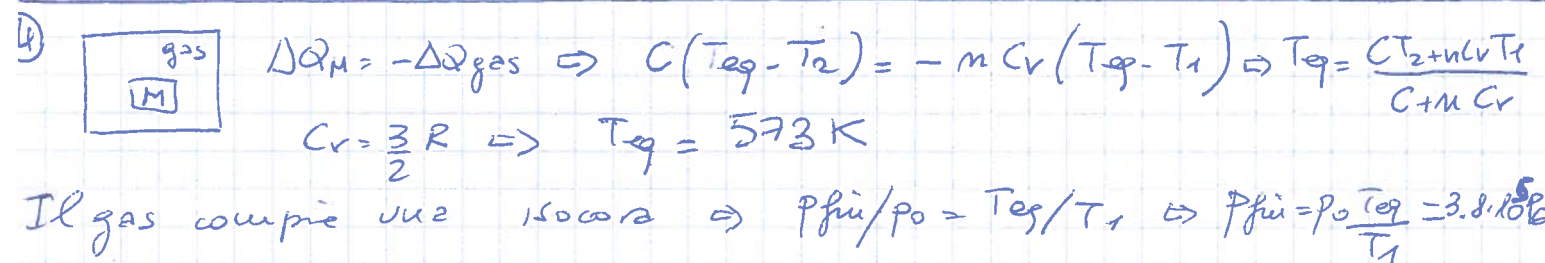 4)
gas
M
ΔQ_M = -ΔQgas ⇔ C(Teq - T2) = - n Cv (Teq - T1) ⇒ Teq = (CT2 + nCvT1) / (C + n Cv)
Cv = 3/2 R ⇒ Teq = 573 K
Il gas compie una isocora ⇒ Pfin/po = Teq/T1 ⇔ Pfin = po Teq/T1 = 3.8·10^5 Pa